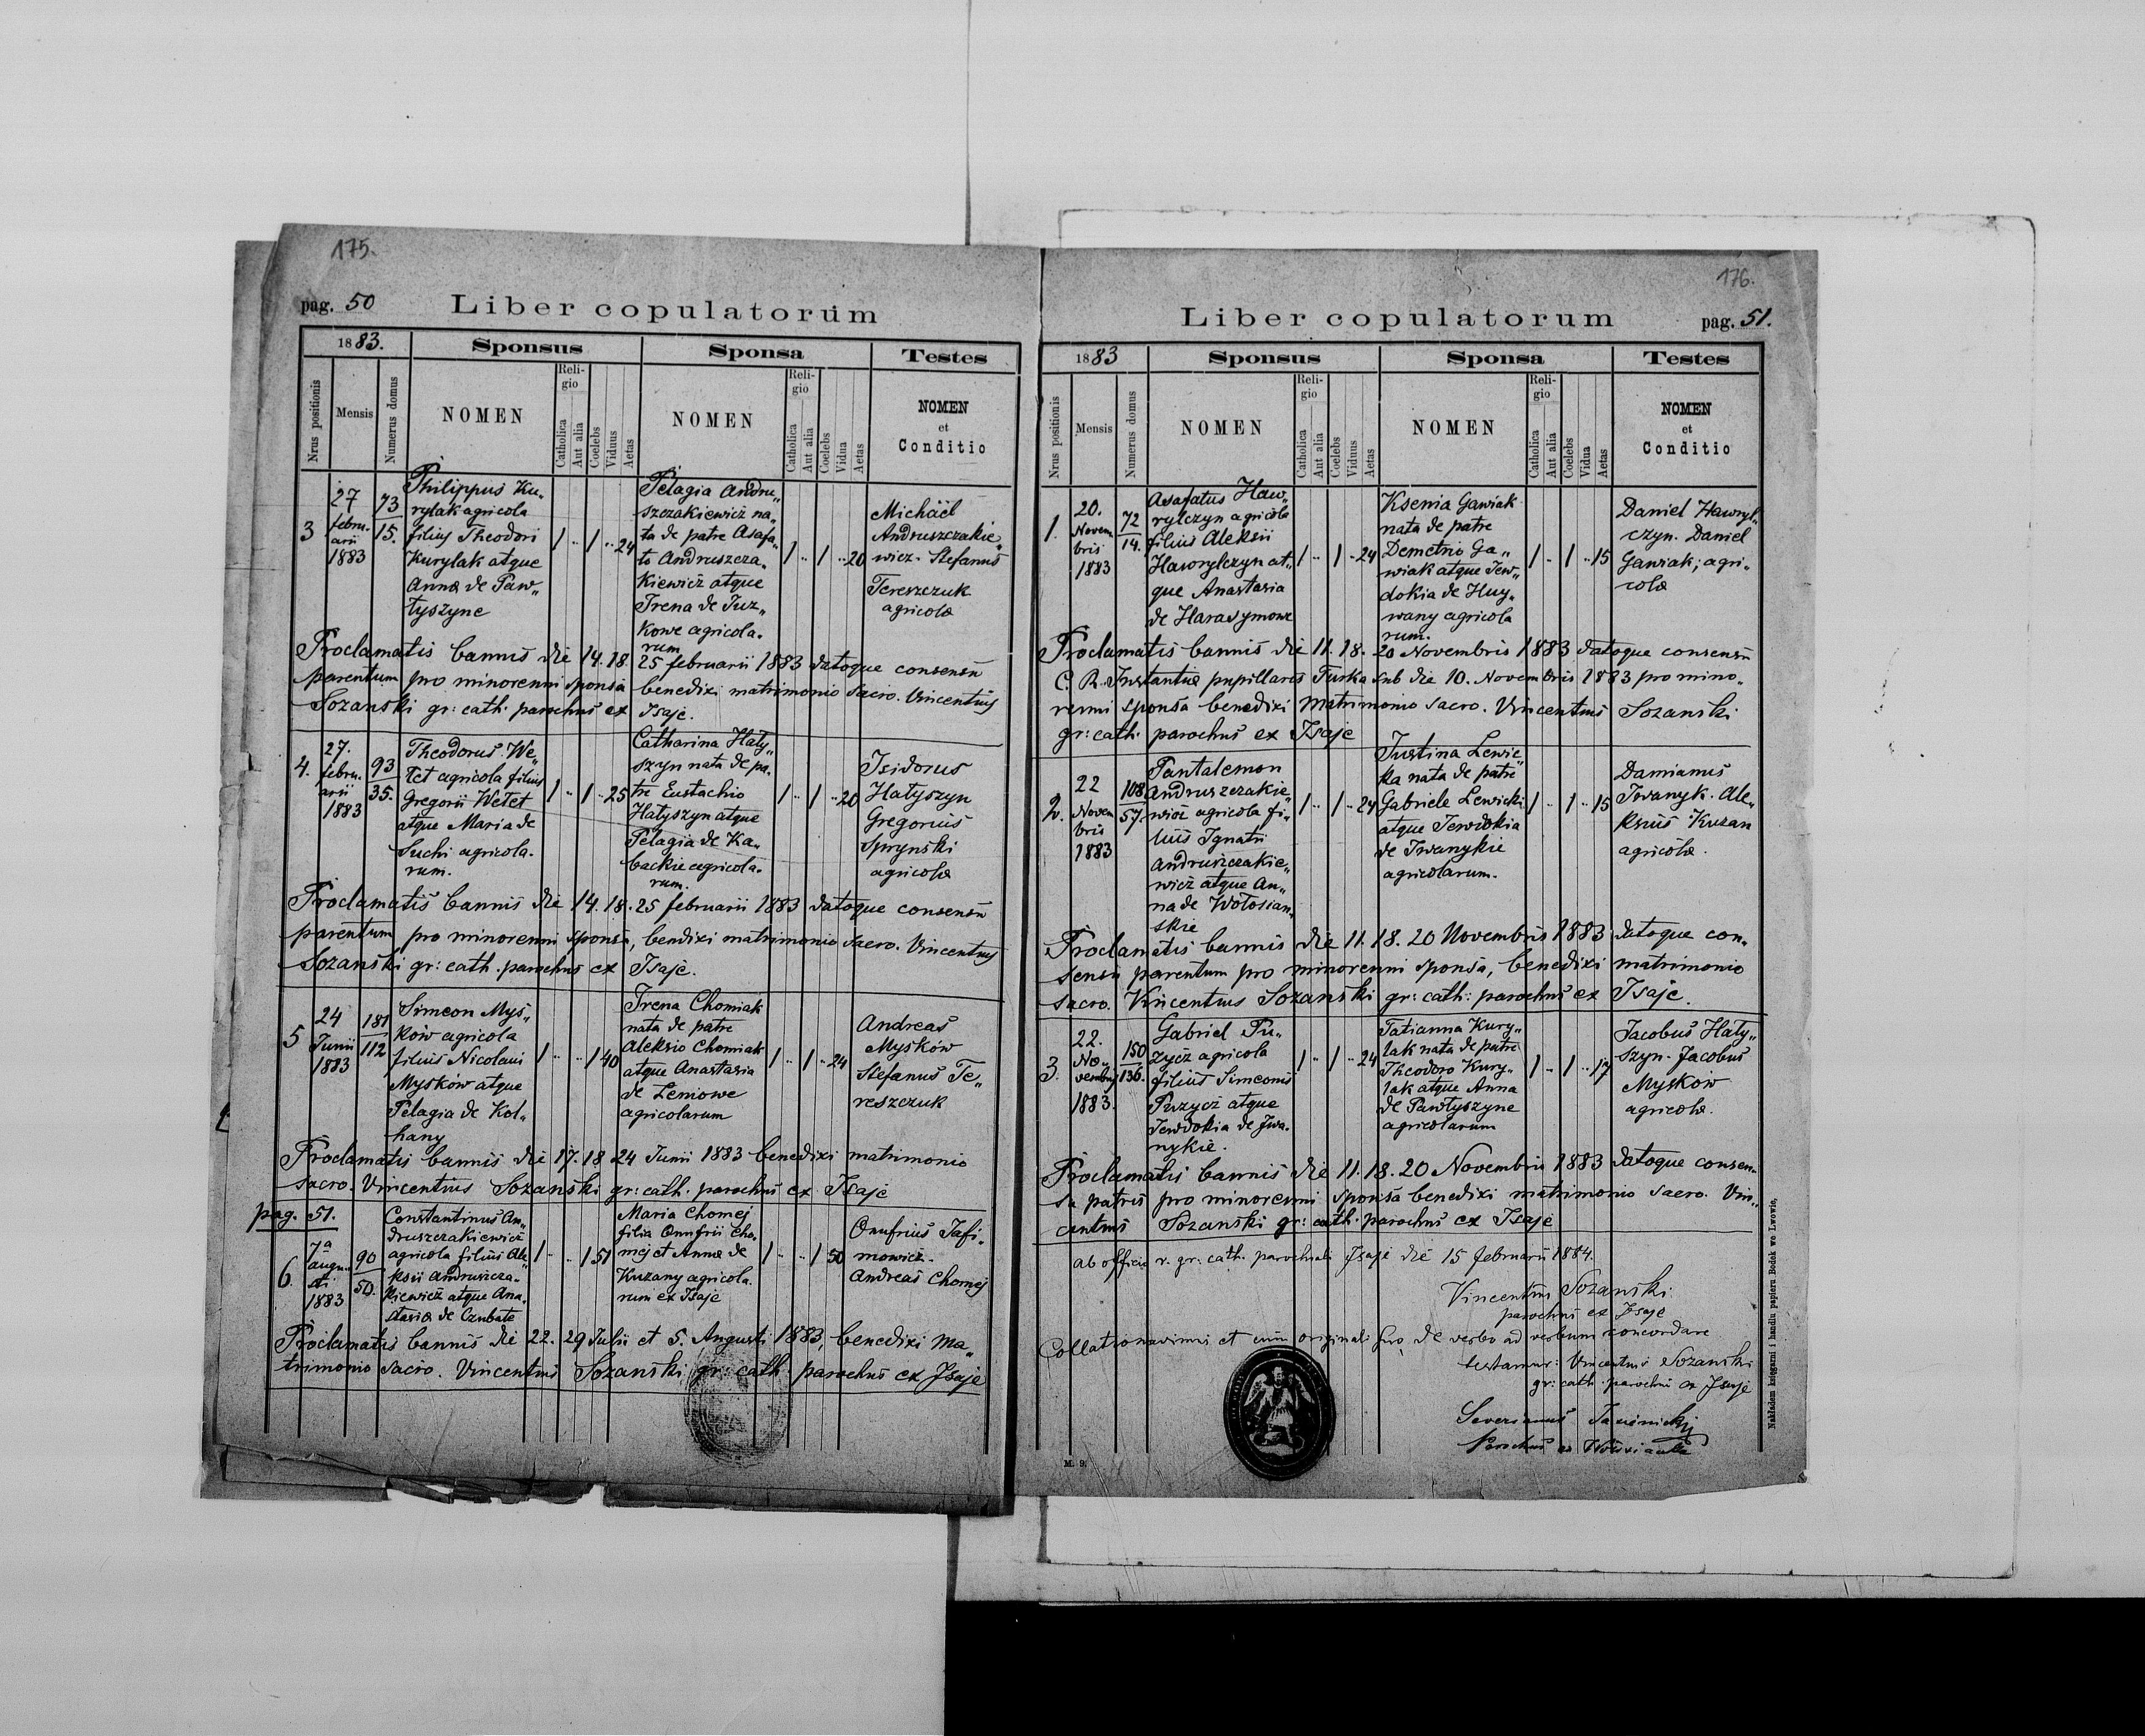 175.
pag. 50
Liber copulatorum
1883.
Sponsus
Sponsa
Testes
Nrus positionis
Mensis
Numerus domus
NOMEN
Religio
Catholica
Aut alia
Coelebs
Viduus
Aetas
NOMEN
Religio
Catholica
Aut alia
Coelebs
Vidua
Aetas
NOMEN
et
Conditio
3
27
febru-
arii
1883
73
15.
Philippus Ku„
rylak agricola
filius Theodori
Kurylak atque
Anna de Paw„
łyszyne
1 „ 1 „ 24
Pelagia Andru„
szczakiewicz na„
ta de patre Asafa„
to Andruszcza„
kiewicz atque
Irena de Juz„
kowe agricola-
rum
1 „ 1 „ 20
Michael
Andruszczakie„
wicz. Stefanus
Tereszczuk
agricolæ
Proclamatis bannis die 14. 18. 25 februarii 1883 datoque consensu
parentum pro minorenni sponsa benedixi matrimonio sacro. Vincentius
Sozański gr: cath. parochus ex Isaje.
4.
27.
febru-
arii
1883
93
35.
Theodorus We„
łet agricola filius
Gregorii Wełet
atque Maria de
Suchi agricola-
rum.
1 „ 1 „ 25
Catharina Haty„
szyn nata de pa-
tre Eustachio
Hatyszyn atque
Pelagia de Ka„
backie agricola-
rum.
1 „ 1 „ 20
Isidorus
Hatyszyn
Gregorius
Sprynski
agricolæ
Proclamatis bannis die 14. 18. 25 februarii 1883 datoque consensu
parentum pro minorenni sponsa, bendixi matrimonio sacro. Vincentius
Sozański gr: cath. parochus ex Isaje.
5
24
Junii
1883
181
112
Simeon Myś„
ków agricola
filius Nicolai
Myśków atque
Pelagia de Kol„
hany
1 „ „ 1 40
Irena Chomiak
nata de patre
Aleksio Chomiak
atque Anastasia
de Leniowe
agricolarum
1 „ 1 „ 24
Andreas
Myśków
Stefanus Te„
reszczuk
Proclamatis bannis die 17. 18 24 Junii 1883 benedixi matrimonio
sacro. Vincentius Sozański gr: cath: parochus ex Isaje
pag. 51.
6.
7a
augu-
sti
1883
90
50.
Constantinus An„
druszczakiewicz
agricola filius Ale„
ksii Andruszcza-
kiewicz atque Ana-
stasia de Czubate
1 „ „ 1 51
Maria Chomej
filia Onufrii Cho„
mej et Annæ de
Kuzany agricola-
rum ex Isaje
1 „ „ 1 50
Onufrius Jafi-
mowicz.
Andreas Chomej
Proclamatis bannis die 22. 29 Julii et 5. Augusti 1883, benedixi ma„
trimonio sacro. Vincentius Sozański gr: cath parochus ex Isaje
176.
Liber copulatorum
pag. 51.
1883
Sponsus
Sponsa
Testes
Nrus positionis
Mensis
Numerus domus
NOMEN
Religio
Catholica
Aut alia
Coelebs
Viduus
Aetas
NOMEN
Religio
Catholica
Aut alia
Coelebs
Vidua
Aetas
NOMEN
et
Conditio
1.
20.
Novem
bris
1883
72
14.
Asafatus Haw„
rylczyn agricola
filius Aleksii
Hawrylczyn at„
que Anastasia
de Harasymowe
1 „ 1 „ 24
Ksenia Gawiak
nata de patre
Demetrio Ga„
wiak atque Jew„
dokia de Huy„
wany agricola
rum.
1 „ 1 „ 15
Daniel Hawryl„
czyn. Daniel
Gawiak; agri„
colæ
Proclamatis bannis die 11. 18. 20 Novembris 1883 datoque consensu
C. R. Instantiæ pupillaris Turka sub die 10. Novembris 1883 pro mino„
renni sponsa benedixi matrimonio sacro. Vincentius Sozanski
gr: cath. parochus ex Isaje
2.
22
Novem
bris
1883
108
57.
Pantalemon
Andruszczakie„
wicz agricola fi„
lius Ignatii
Andruszczakie„
wicz atque An„
na de Wołosian„
skie
1 „ 1 „ 24
Justina Lewic„
ka nata de patre
Gabriele Lewicki
atque Jewdokia
de Iwanykie
agricolarum.
1 „ 1 „ 15
Damianus
Iwanyk. Ale„
ksius Kuzan
agricolæ.
Proclamatis bannis die 11. 18. 20 Novembris 1883 datoque con-
sensu parentum pro minorenni sponsa, benedixi matrimonio
sacro. Vincentius Sozański gr: cath: parochus ex Isaje.
3.
22.
No„
vembris
1883.
150
136.
Gabriel Pu„
zycz agricola
filius Simeonis
Puzycz atque
Jewdokia de Iwa-
nykie.
1 „ 1 „ 24
Tatianna Kury„
lak nata de patre
Theodoro Kury„
lak atque Anna
de Pawłyszyne
agricolarum
1 „ 1 „ 17
Jacobus Haty„
szyn. Jacobus
Myśków
agricolæ.
Proclamatis bannis die 11. 18. 20 Novembris 1883 datoque consen-
su patris pro minorenni sponsa benedixi matrimonio sacro. Vin„
centius Sozanski gr: cath. parochus ex Isaje
ab officio r. gr: cath. parochiali Isaje die 15 februarii 1884.
Vincentius Sozański
parochus ex Isaje
Collationavimus et cum originali suo de verbo ad verbum concordare
testamur: Vincentius Sozanski
gr: cath. parochus ex Isaje
Severianus
Parochus
M. 9.
Nakładem księgarni i handlu papieru Bodek we Lwowie,